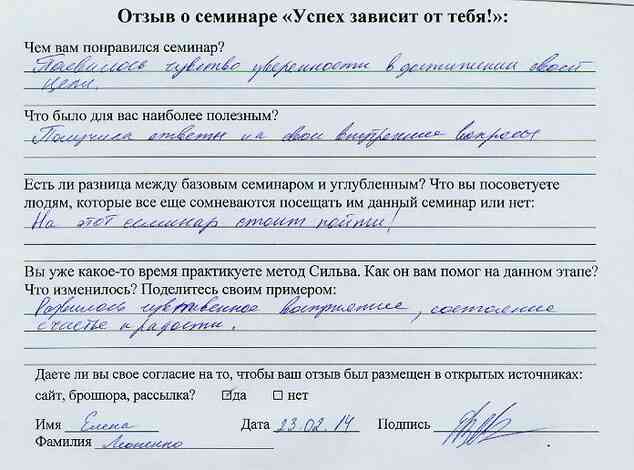 Отзыв о семинаре «Успех зависит от тебя!»:
Чем вам понравился семинар?
Появилось чувство уверенности в достижении своей
цели.
Что было для вас наиболее полезным?
Получила ответы на свои внутренние вопросы
Есть ли разница между базовым семинаром и углубленным? Что вы посоветуете
людям, которые все еще сомневаются посещать им данный семинар или нет:
На этот семинар стоит пойти!
Вы уже какое-то время практикуете метод Сильва. Как он вам помог на данном этапе?
Что изменилось? Поделитесь своим примером:
Развилось чувственное восприятие, состояние
счастье и радости.
Даете ли вы свое согласие на то, чтобы ваш отзыв был размещен в открытых источниках:
сайт, брошюра, рассылка? да нет
Имя Елена Дата 23.02.14 Подпись
Фамилия